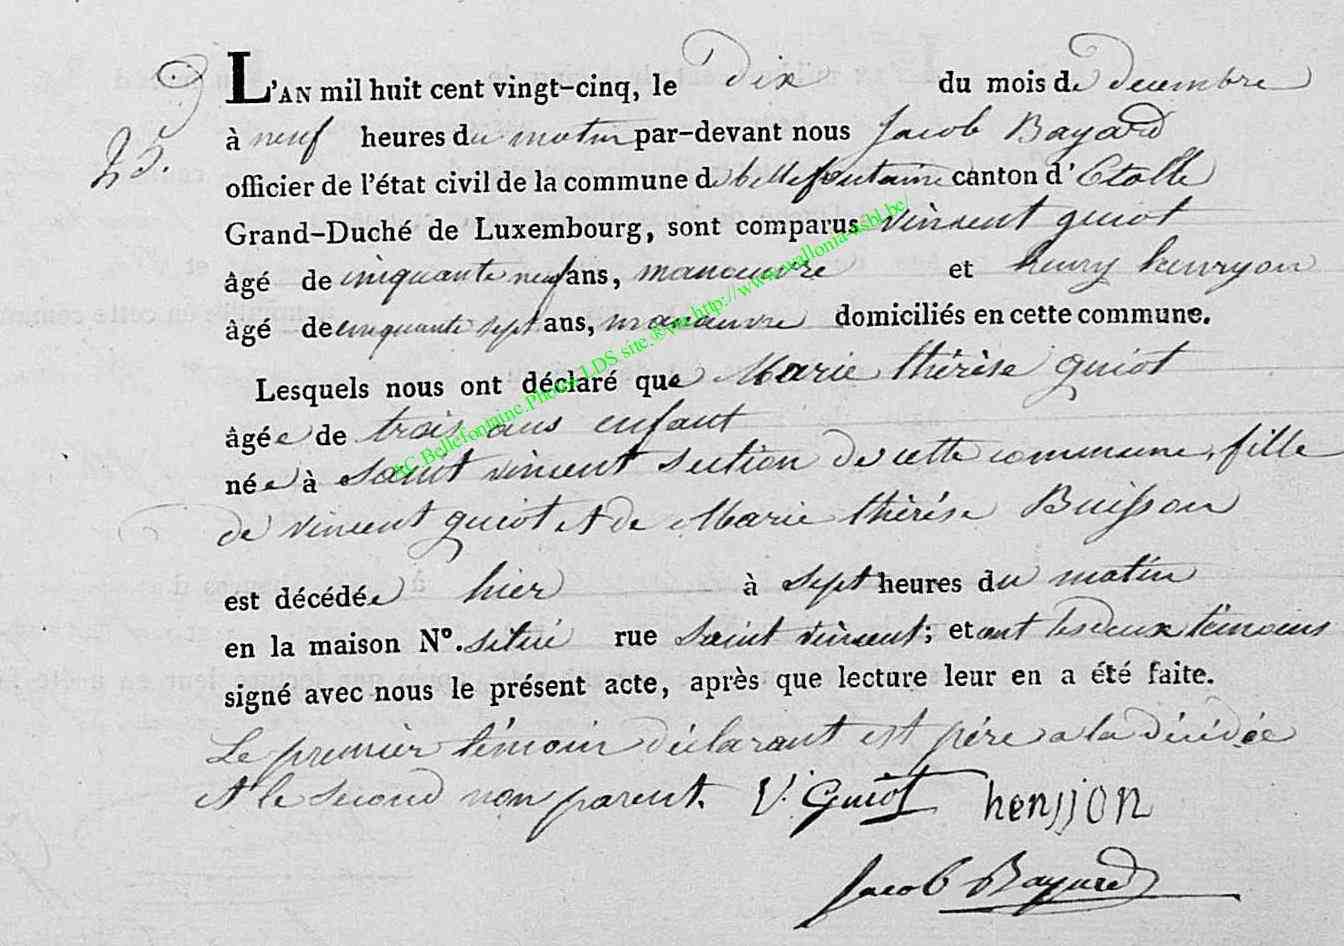 L'AN mil huit cent vingt-cinq, le Dix du mois de Decembre
25.
à neuf heures du matin par-devant nous Jacob Bayard
officier de l'état civil de la commune de bellefontaine canton d'Etalle
Grand-Duché de Luxembourg, sont comparus vincent guiot
âgé de cinquante neuf ans, manoeuvre et henry henryon
âgé de cinquante sept ans, manoeuvre domiciliés en cette commune.
Lesquels nous ont déclaré que Marie thérèse guiot
âgée de trois ans enfant
née à Saint vincent section de cette commune, fille
de vincent guiot et de Marie thérèse Buisson
est décédée hier à sept heures du matin
en la maison N°. située rue Saint vincent; et ont les deux témoins
signé avec nous le présent acte, après que lecture leur en a été faite.
Le premier témoin déclarant est père a la décédée
et le second non parent. V. Guiot henrjon
Jacob Bayard
AC.Bellefontaine.Photos.LDS.site.®.via.http://www.wallonia-asbl.be/